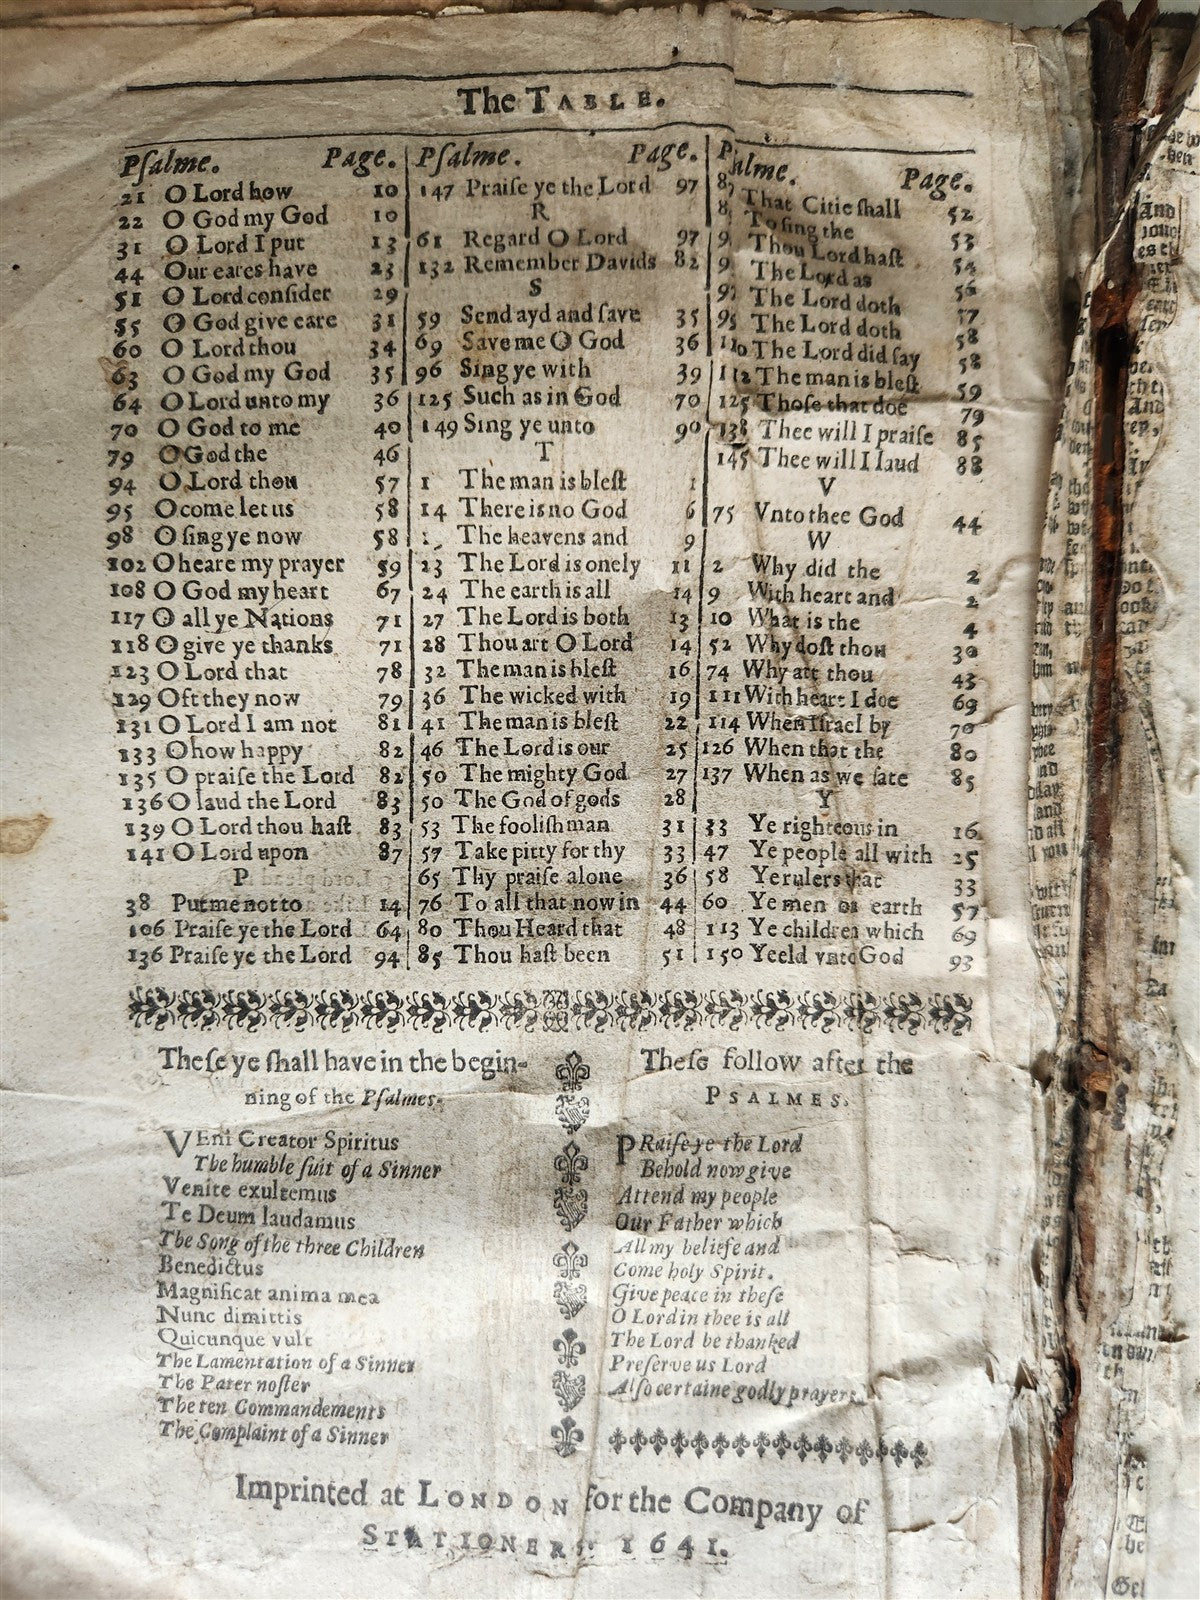 The TABLE.
Pſalme. Page.
21 O Lord how 10
22 O God my God 10
31 O Lord I put 13
44 Our eares have 23
51 O Lord conſider 29
55 O God give eare 31
60 O Lord thou 34
63 O God my God 35
64 O Lord unto my 36
70 O God to me 40
79 O God the 46
94 O Lord thou 57
95 O come let us 58
98 O ſing ye now 58
102 O heare my prayer 59
108 O God my heart 67
117 O all ye Nations 71
118 O give ye thanks 71
123 O Lord that 78
129 Oft they now 79
131 O Lord I am not 81
133 O how happy 82
135 O praiſe the Lord 82
136 O laud the Lord 83
139 O Lord thou haſt 83
141 O Lord upon 87
P
38 Put me not to 14
106 Praiſe ye the Lord 64
136 Praiſe ye the Lord 94
Pſalme. Page.
147 Praiſe ye the Lord 97
R
61 Regard O Lord 97
132 Remember Davids 82
S
59 Send ayd and ſave 35
69 Save me O God 36
96 Sing ye with 39
125 Such as in God 70
149 Sing ye unto 90
T
1 The man is bleſt 1
14 There is no God 6
The heavens and 9
23 The Lord is onely 11
24 The earth is all 14
27 The Lord is both 13
28 Thou art O Lord 14
32 The man is bleſt 16
36 The wicked with 19
41 The man is bleſt 22
46 The Lord is our 25
50 The mighty God 27
50 The God of gods 28
53 The fooliſh man 31
57 Take pitty for thy 33
65 Thy praiſe alone 36
76 To all that now in 44
80 Thou Heard that 48
85 Thou haſt been 51
Pſalme. Page.
87 That Citie ſhall 52
To ſing the 53
Thou Lord haſt 54
The Lord as 56
The Lord doth 57
95 The Lord doth 58
110 The Lord did ſay 58
112 The man is bleſt 59
125 Thoſe that doe 79
138 Thee will I praiſe 85
145 Thee will I laud 88
V
75 Vnto thee God 44
W
2 Why did the 2
9 With heart and 2
10 What is the 4
52 Why doſt thou 30
74 Why art thou 43
111 With heart I doe 69
114 When Iſrael by 70
126 When that the 80
137 When as we ſate 85
Y
33 Ye righteous in 16
47 Ye people all with 25
58 Ye rulers that 33
60 Ye men on earth 57
113 Ye children which 69
150 Yeeld vnto God 93
Theſe ye ſhall have in the begin-
ning of the Pſalmes.
VEni Creator Spiritus
The humble ſuit of a Sinner
Venite exultemus
Te Deum laudamus
The Song of the three Children
Benedictus
Magnificat anima mea
Nunc dimittis
Quicunque vult
The Lamentation of a Sinner
The Pater noſter
The ten Commandements
The Complaint of a Sinner
Theſe follow after the
PSALMES.
PRaiſe ye the Lord
Behold now give
Attend my people
Our Father which
All my beliefe and
Come holy Spirit.
Give peace in theſe
O Lord in thee is all
The Lord be thanked
Preſerve us Lord
Alſo certaine godly prayers.
Imprinted at LONDON for the Company of
STATIONERS. 1641.